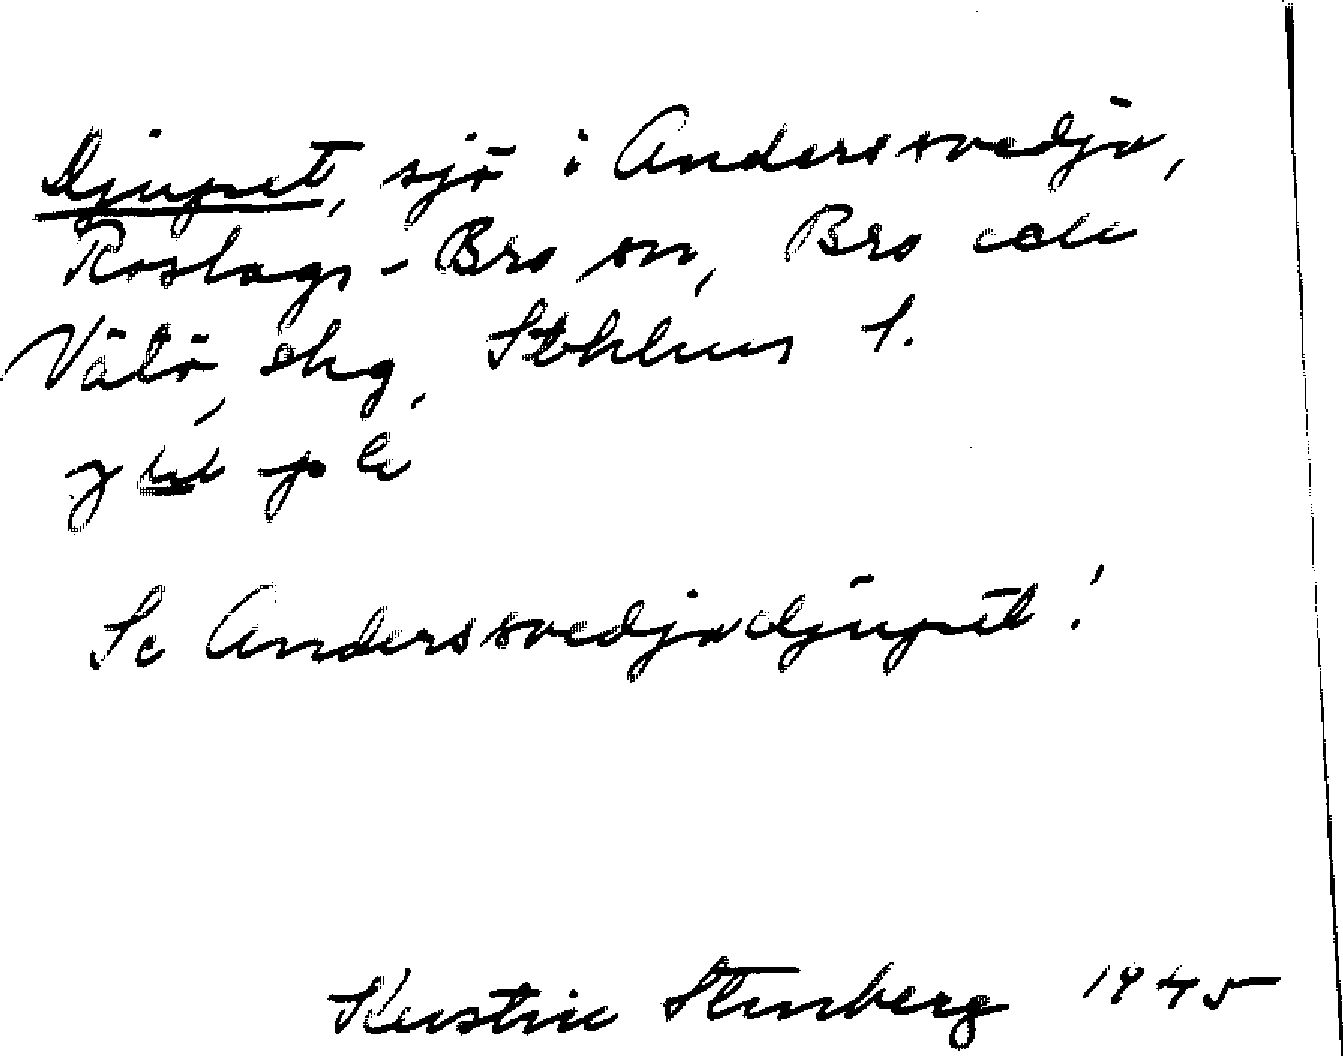 Djupet, sjö i Anderssvedja,
Roslags-Bro sn, Bro och
Vätö skg, Sthlms l.
Se Anderssvedjadjupet!
Kerstin Stenberg 1945